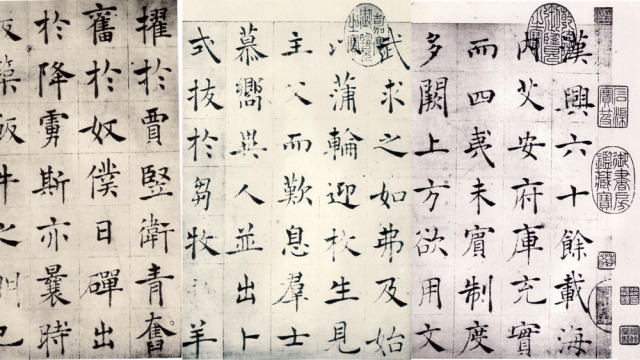 漢興六十餘載海
內艾安府庫充實
而四夷未賓制度
多闕上方欲用文
武求之如弗及始
以蒲輪迎枚生見
主父而歎息羣士
慕嚮異人並出卜
式拔於芻牧羊
擢於賈豎衛青奮
奮於奴僕日磾出
於降虜斯亦曩時
版築飯牛之朋已
嘉慶御覽之寶
御書房鑑藏寶